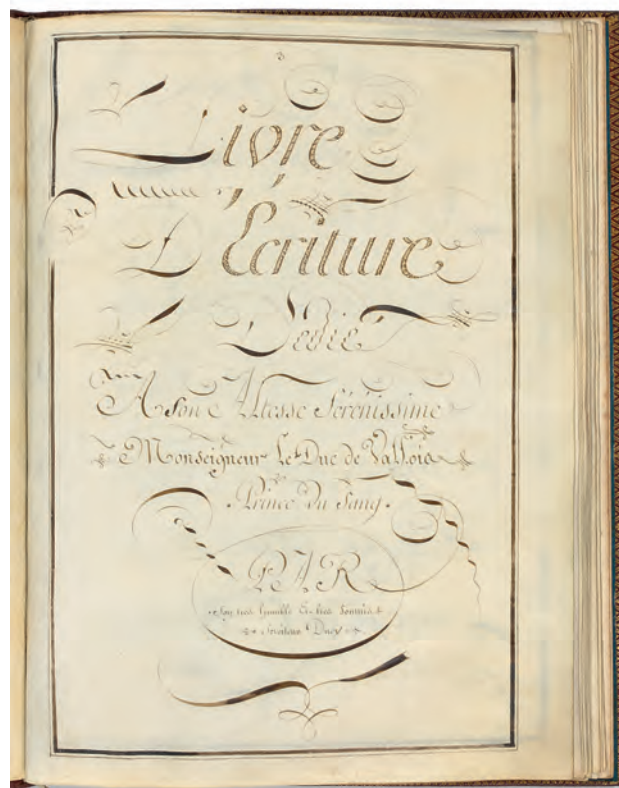 Livre
D'Ecriture
Dedié
A Son Altesse Serenissime
Monseigneur Le Duc de Vallois
Prince Du Sang.
PAR
Son tres humble & tres Soumis
Serviteur